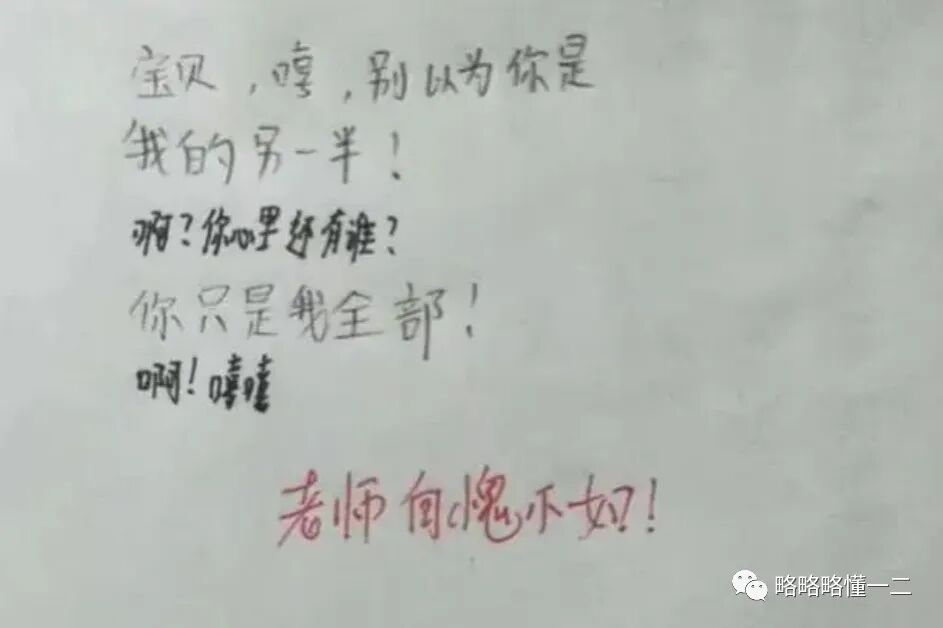 宝贝，嘻，别以为你是
我的另一半！
啊？你心里还有谁？
你只是我全部！
啊！嘻嘻
老师自愧不如！
略略略懂一二